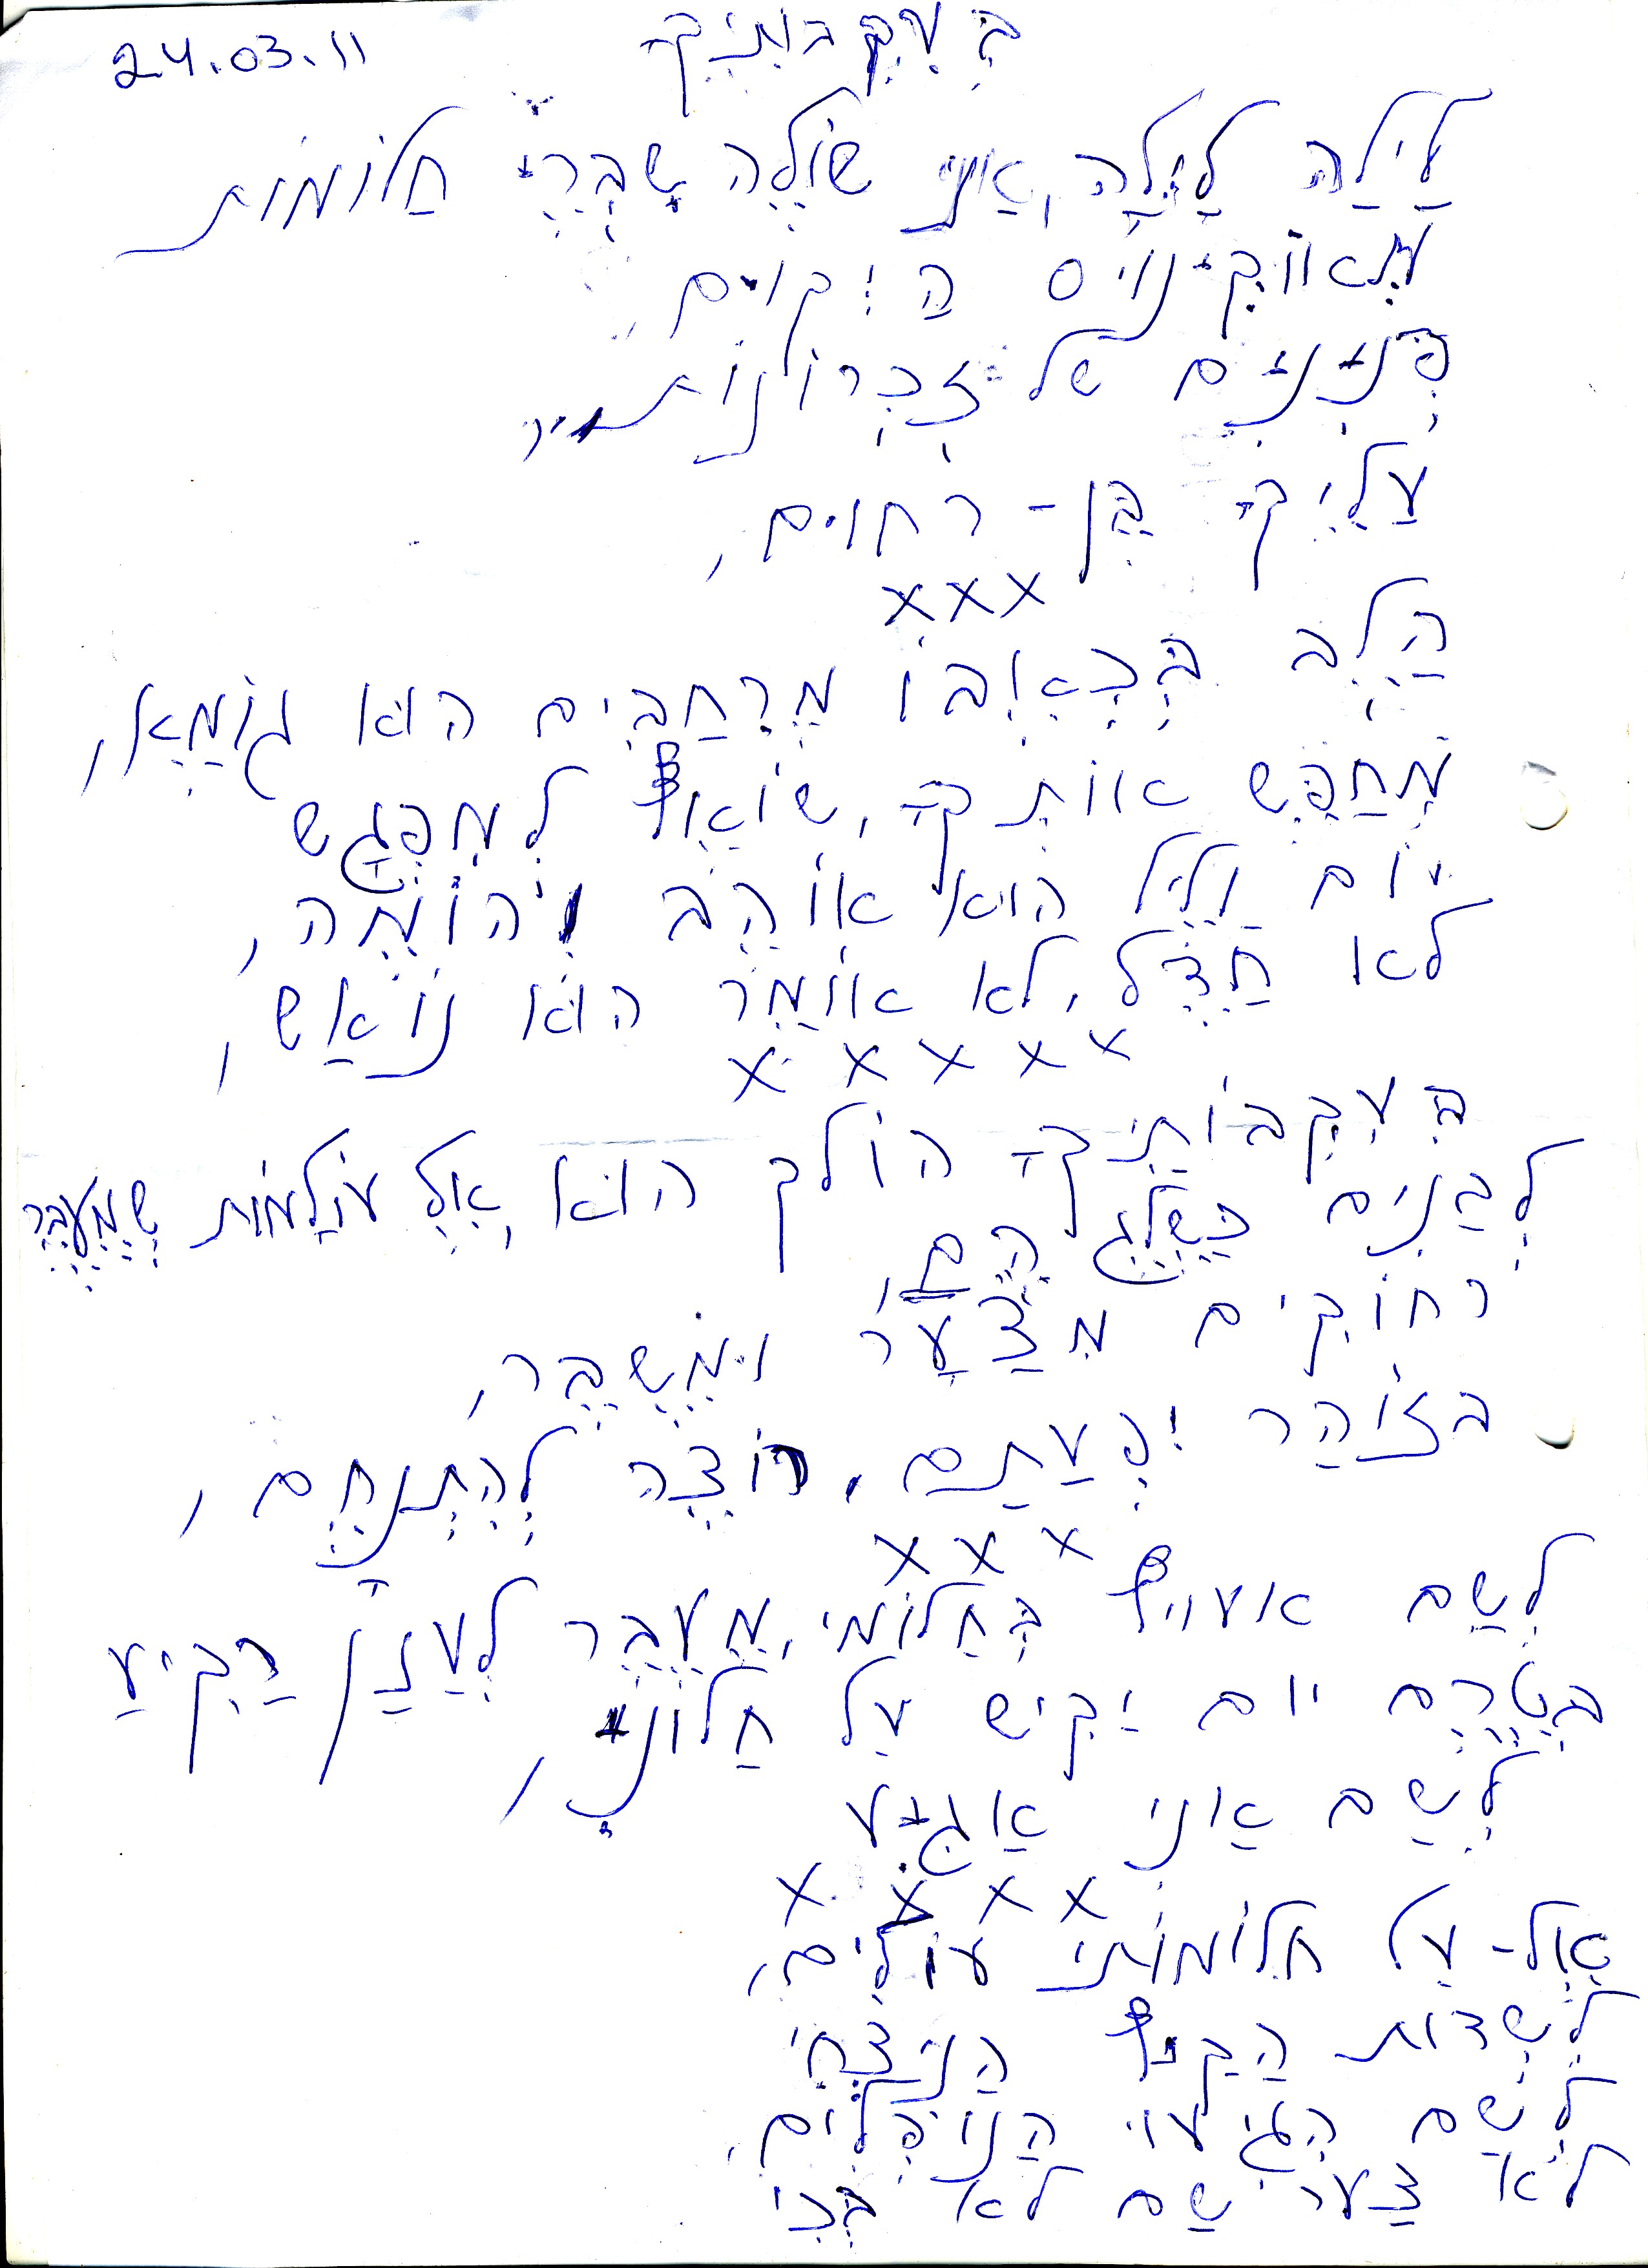 בְּעִקְבוֹתֶיךָ
24.03.11
לַיְלָה לַיְלָה, אֲנִי שׁוֹלֶה שִׁבְרֵי חֲלוֹמוֹת
מֵאוֹקְיָנוֹס הַיְקוּם,
פְּנִינִים שֶׁל זִכְרוֹנוֹת
עָלֶיךָ בֵּן-רחום,
xxx
הַלֵּב בִּכְאֵבוֹ מֶרְחַבִים הוּא גּוֹמֵא,
מְחַפֵּשׂ אוֹתְךָ, שׁוֹאֵף לְמִפְגָּשׁ
יוֹם וָלֵיל הוּא אוֹהֵב וְהוֹמֶה,
לֹא חָדֵל, לֹא אוֹמֵר הוּא נוֹאַשׁ,
x x x x x
בְּעִקְבוֹתֶיךָ הוֹלֵךְ הוּא, אֶל עוֹלָמוֹת שֶׁמֵּעֵבֶר
לְבָנִים כַּשֶּׁלֶג הֵם,
רחוֹקִים מִצַּעַר וּמִשֶּׁבֶר,
בזוֹהַר יִפְעָתַם, רוֹצֶה לְהִתְנַחֵם,
x x x
לְשָׁם אעוּף בַּחֲלוֹמִי, מֵעֵבֶר לַעֲנַן רָקִיעַ
בְּטֶרֶם יוֹם יַקִּישׁ עַל חַלּוֹנִי,
לְשָׁם אֲנִי אַגִּיעַ
x x x x
אֶל-עַל חלוֹמוֹתַי עוֹלִים,
לִשְׂדוֹת הַקּיף הַנִּצְחִי
לְשָׁם הִגִּיעוּ הַנּוֹפְלִים,
לֹא צַּעַר שָׁם לֹא בְּכִי